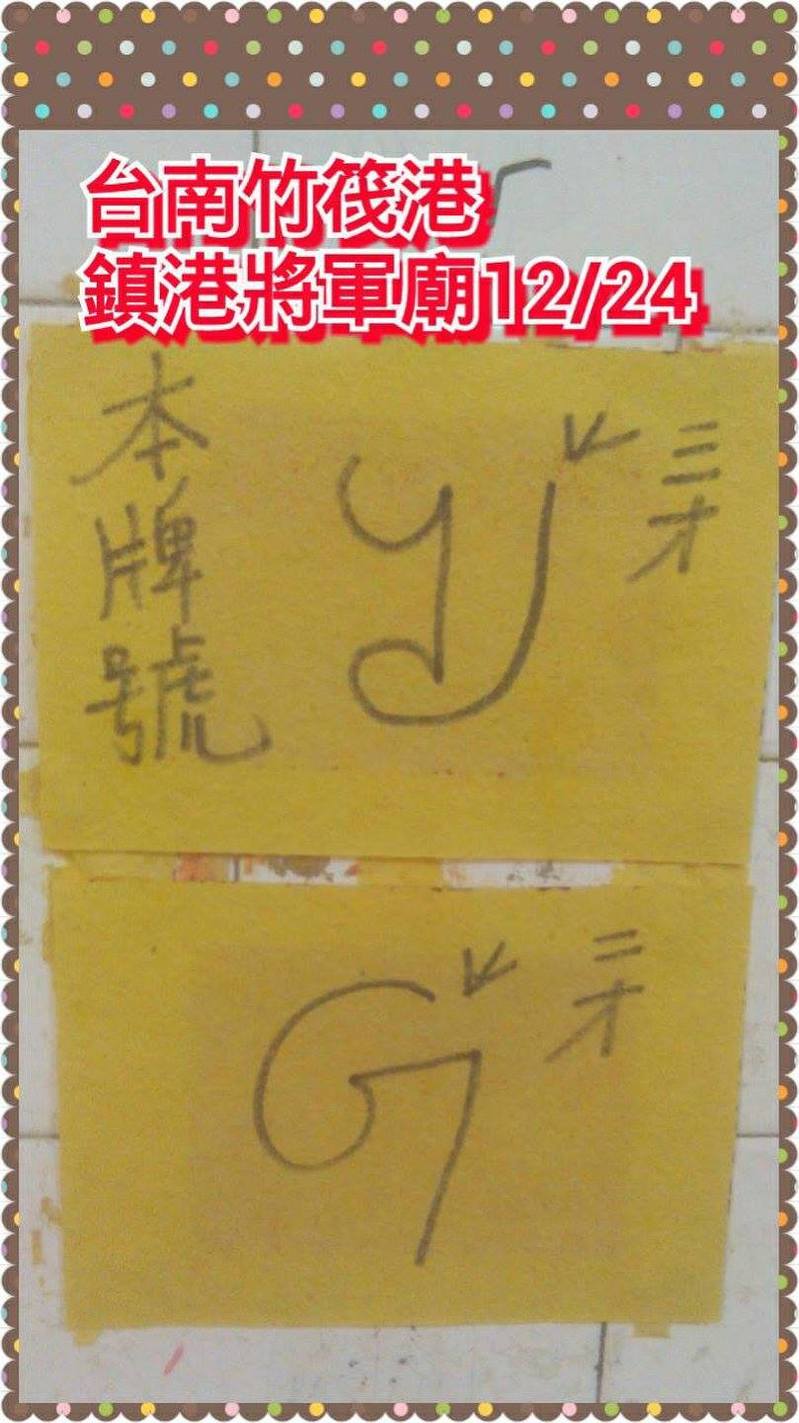 台南竹筏港
鎮港將軍廟12/24
本牌號
三才
二才